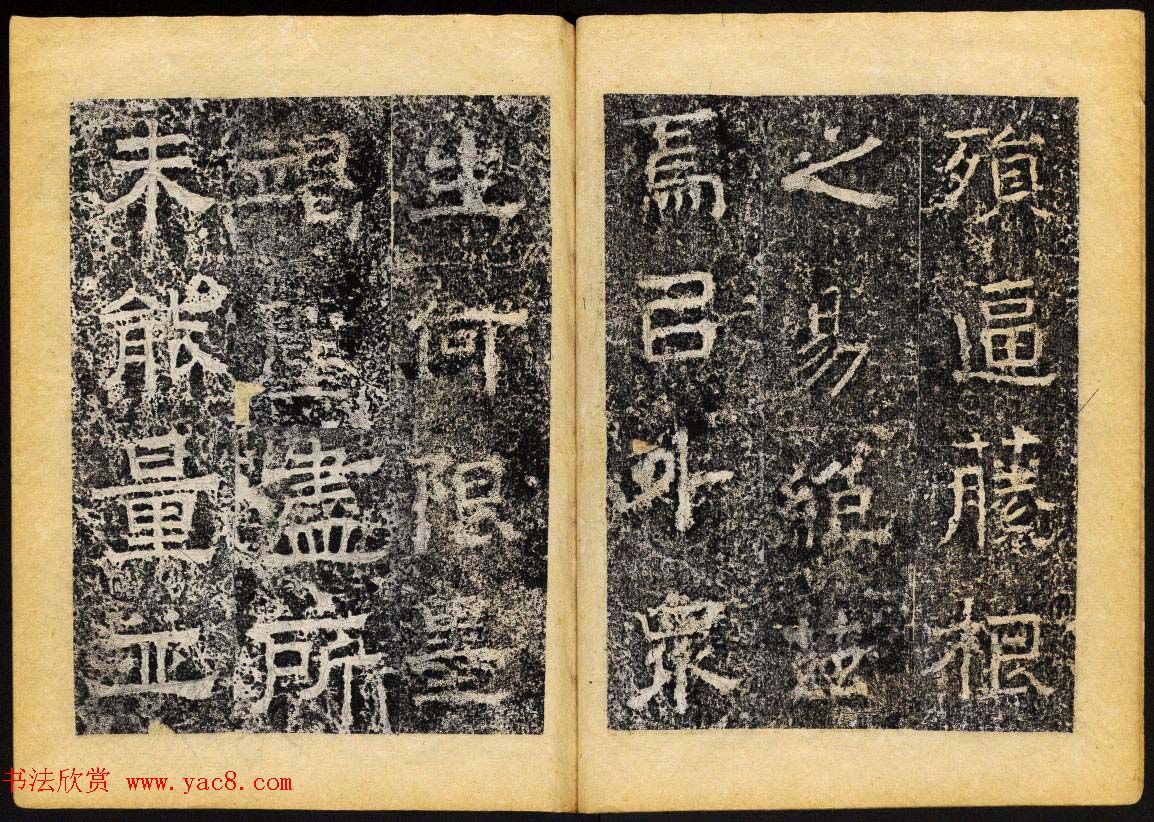 殞逼藤根
之易絕茲
焉㠯外眾
生何限
盡所
未能量並
书法欣赏 www.yac8.com